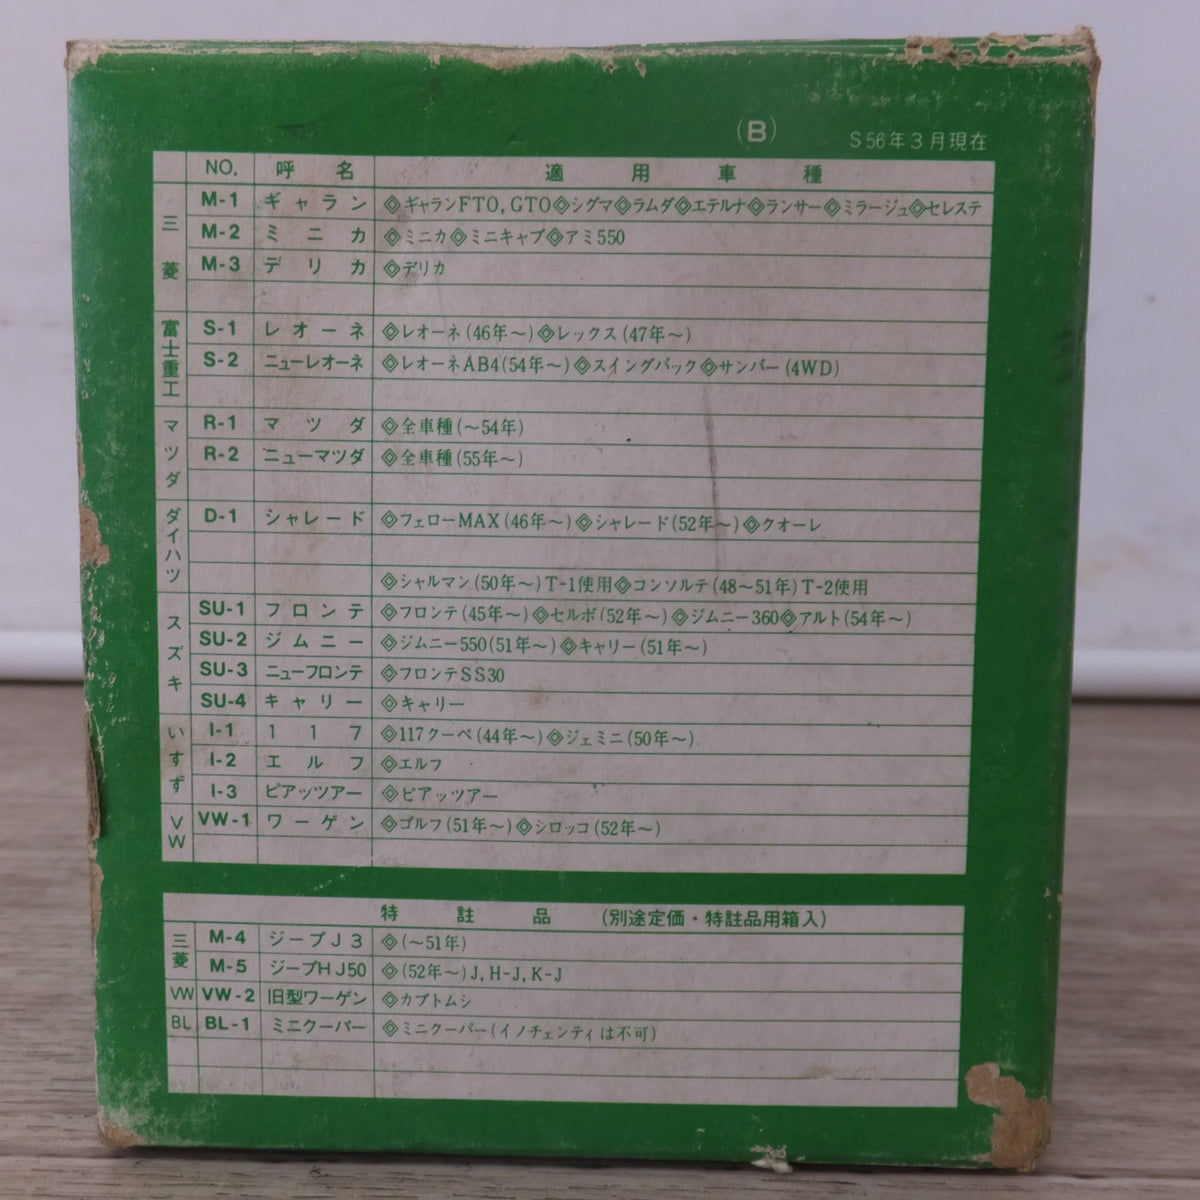 (B)
S56年3月現在
NO. 呼名 適用車種
三菱
M-1 ギャラン ◈ギャランFTO,GTO◈シグマ◈ラムダ◈エテルナ◈ランサー◈ミラージュ◈セレステ
M-2 ミニカ ◈ミニカ◈ミニキャブ◈アミ550
M-3 デリカ ◈デリカ
富士重工
S-1 レオーネ ◈レオーネ(46年〜)◈レックス(47年〜)
S-2 ニューレオーネ ◈レオーネAB4(54年〜)◈スイングバック◈サンバー(4WD)
マツダ
R-1 マツダ ◈全車種(〜54年)
R-2 ニューマツダ ◈全車種(55年〜)
ダイハツ
D-1 シャレード ◈フェローMAX(46年〜)◈シャレード(52年〜)◈クオーレ
◈シャルマン(50年〜)T-1使用◈コンソルテ(48〜51年)T-2使用
スズキ
SU-1 フロンテ ◈フロンテ(45年〜)◈セルボ(52年〜)◈ジムニー360◈アルト(54年〜)
SU-2 ジムニー ◈ジムニー550(51年〜)◈キャリー(51年〜)
SU-3 ニューフロンテ ◈フロンテSS30
SU-4 キャリー ◈キャリー
いすず
I-1 117 ◈117クーペ(44年〜)◈ジェミニ(50年〜)
I-2 エルフ ◈エルフ
I-3 ピアッツアー ◈ピアッツアー
VW
VW-1 ワーゲン ◈ゴルフ(51年〜)◈シロッコ(52年〜)
特註品 (別途定価・特註品用箱入)
三菱
M-4 ジープJ3 ◈(〜51年)
M-5 ジープHJ50 ◈(52年〜)J,H-J,K-J
VW VW-2 旧型ワーゲン ◈カブトムシ
BL BL-1 ミニクーパー ◈ミニクーパー(イノチェンティは不可)